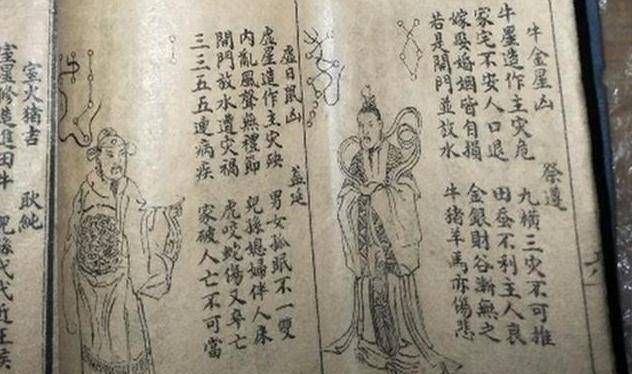 牛金星凶　祭遵
牛星造作主灾危　九横三灾不可推
家宅不安人口退　田蚕不利主人衰
嫁娶婚姻皆自損　金銀財谷漸無之
若是開門並放水　牛猪羊馬亦傷悲
虚日鼠凶　盖延
虚星造作主灾殃　男女孤眠不一雙
内亂風聲無禮節　兒孫媳婦伴人床
開門放水遭灾禍　虎咬蛇傷又卒亡
三三五五連病疾　家破人亡不可當
室火猪吉　耿純
室星修造進田牛　兒孫代代近王侯